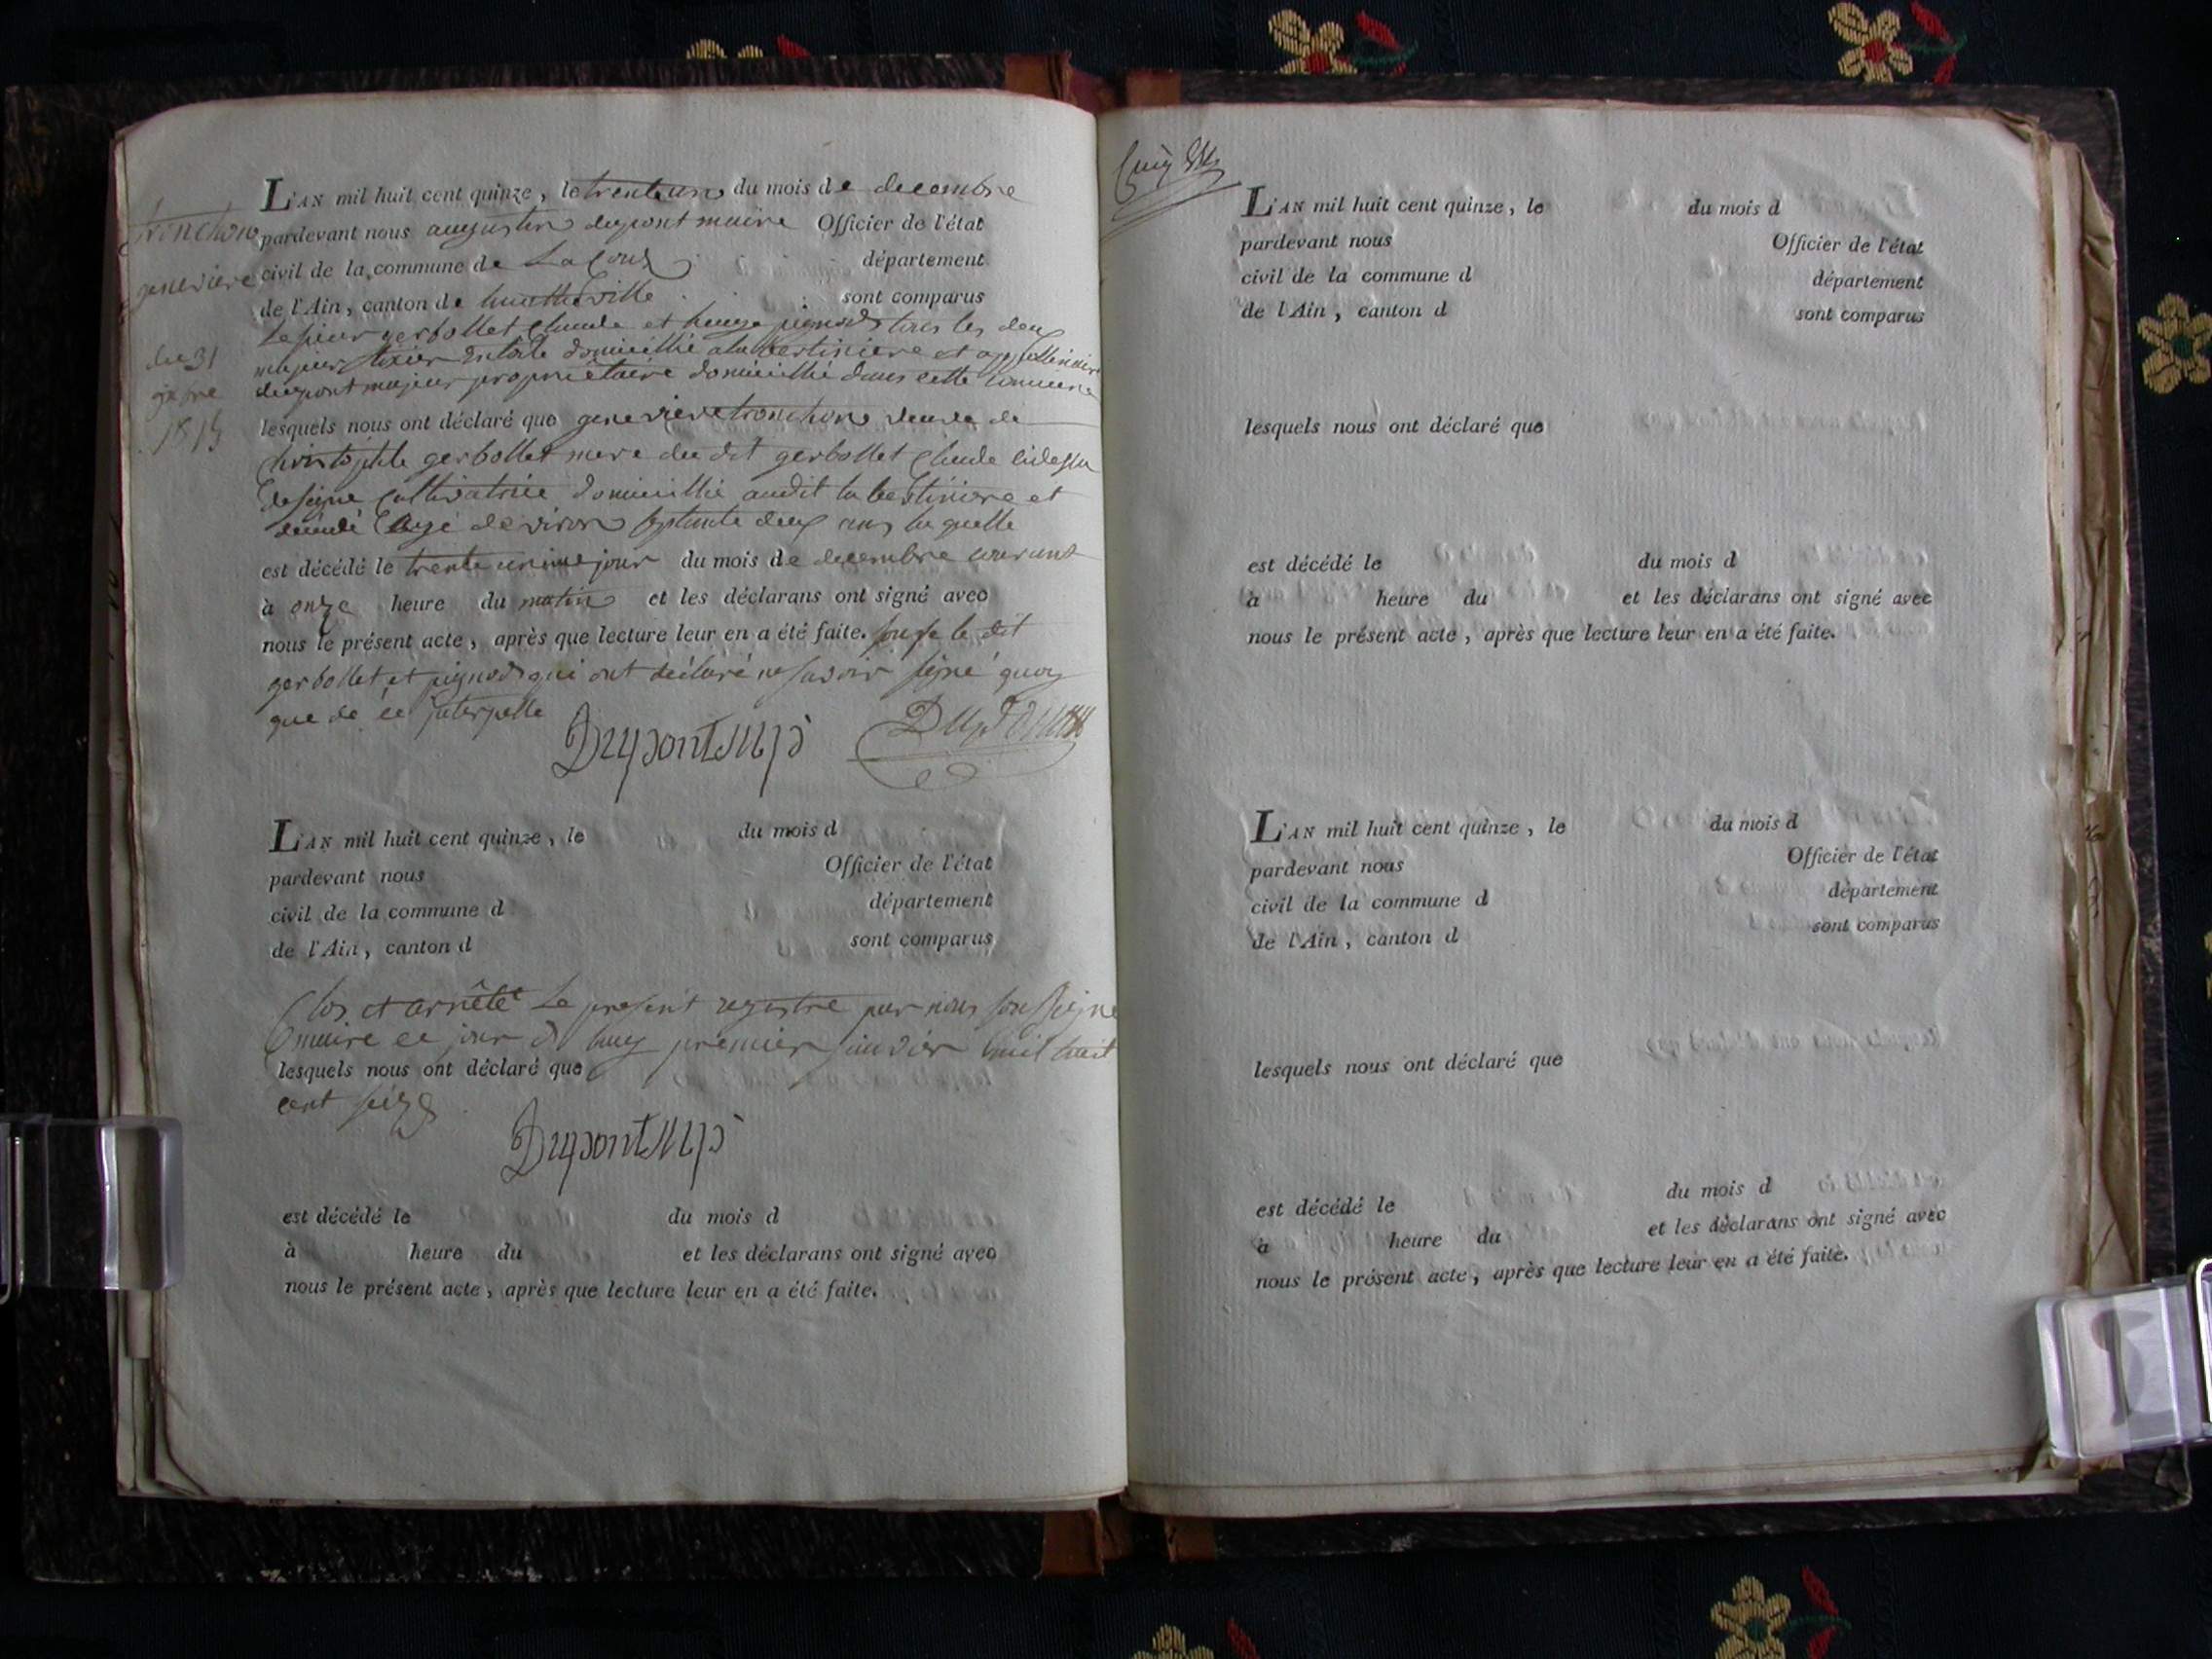 L'AN mil huit cent quinze, le trente un du mois de decembre
tronchon
pardevant nous augustin dupont maire Officier de l'état
genevieve
civil de la commune de La Coux département
de l'Ain, canton de hautteville sont comparus
le sieur gerbollet Claude et tous les deux
du 31
majeur domicillié a la bestiniere et
dupont majeur propriêtaire domicillié dans cette commune
1815
lesquels nous ont déclaré que genevieve tronchon veuve de
Christophle gerbollet mere du dit gerbollet Claude
designe Cultivatrice domicillié audit la bestiniere et
agé deviron septante deux ans laquelle
est décédé le trente unieme jour du mois de decembre courant
à onze heure du matin et les déclarans ont signé avec
nous le présent acte, après que lecture leur en a été faite. le dit
gerbollet et pignod qui ont déclaré ne savoir signé quoy
que de ce interpelle
Dupont Dupont
L'AN mil huit cent quinze, le du mois d
pardevant nous Officier de l'état
civil de la commune d département
de l'Ain, canton d sont comparus
Clos et arrêté Le present registre par nous soussigné
maire ce jour d huy premier janvier mil huit
lesquels nous ont déclaré que
cent seize
Dupont
est décédé le du mois d
à heure du et les déclarans ont signé avec
nous le présent acte, après que lecture leur en a été faite.
L'AN mil huit cent quinze, le du mois d
pardevant nous Officier de l'état
civil de la commune d département
de l'Ain, canton d sont comparus
lesquels nous ont déclaré que
est décédé le du mois d
à heure du et les déclarans ont signé avec
nous le présent acte, après que lecture leur en a été faite.
L'AN mil huit cent quinze, le du mois d
pardevant nous Officier de l'état
civil de la commune d département
de l'Ain, canton d sont comparus
lesquels nous ont déclaré que
est décédé le du mois d
à heure du et les déclarans ont signé avec
nous le présent acte, après que lecture leur en a été faite.